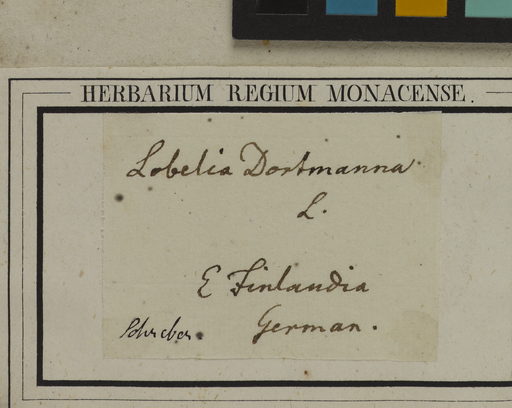 HERBARIUM REGIUM MONACENSE.
Lobelia Dortmanna
L.
E Finlandia
German.
Schreber.